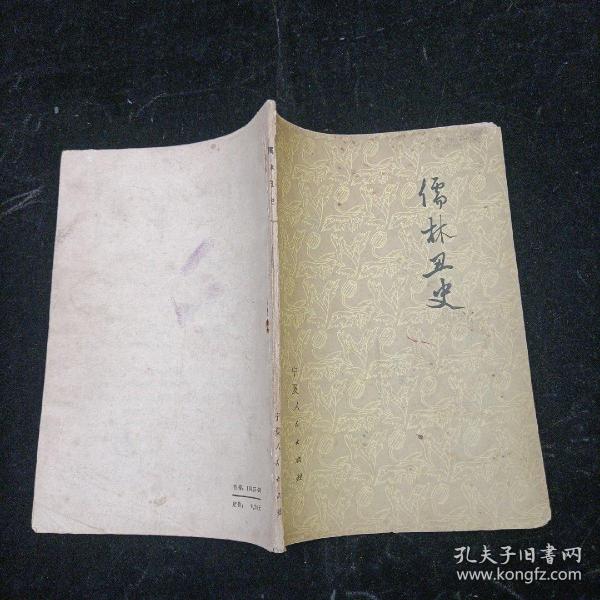 儒林丑史
宁夏人民出版社
儒林丑史
宁夏人民出版社
孔夫子旧书网
www.kongfz.com